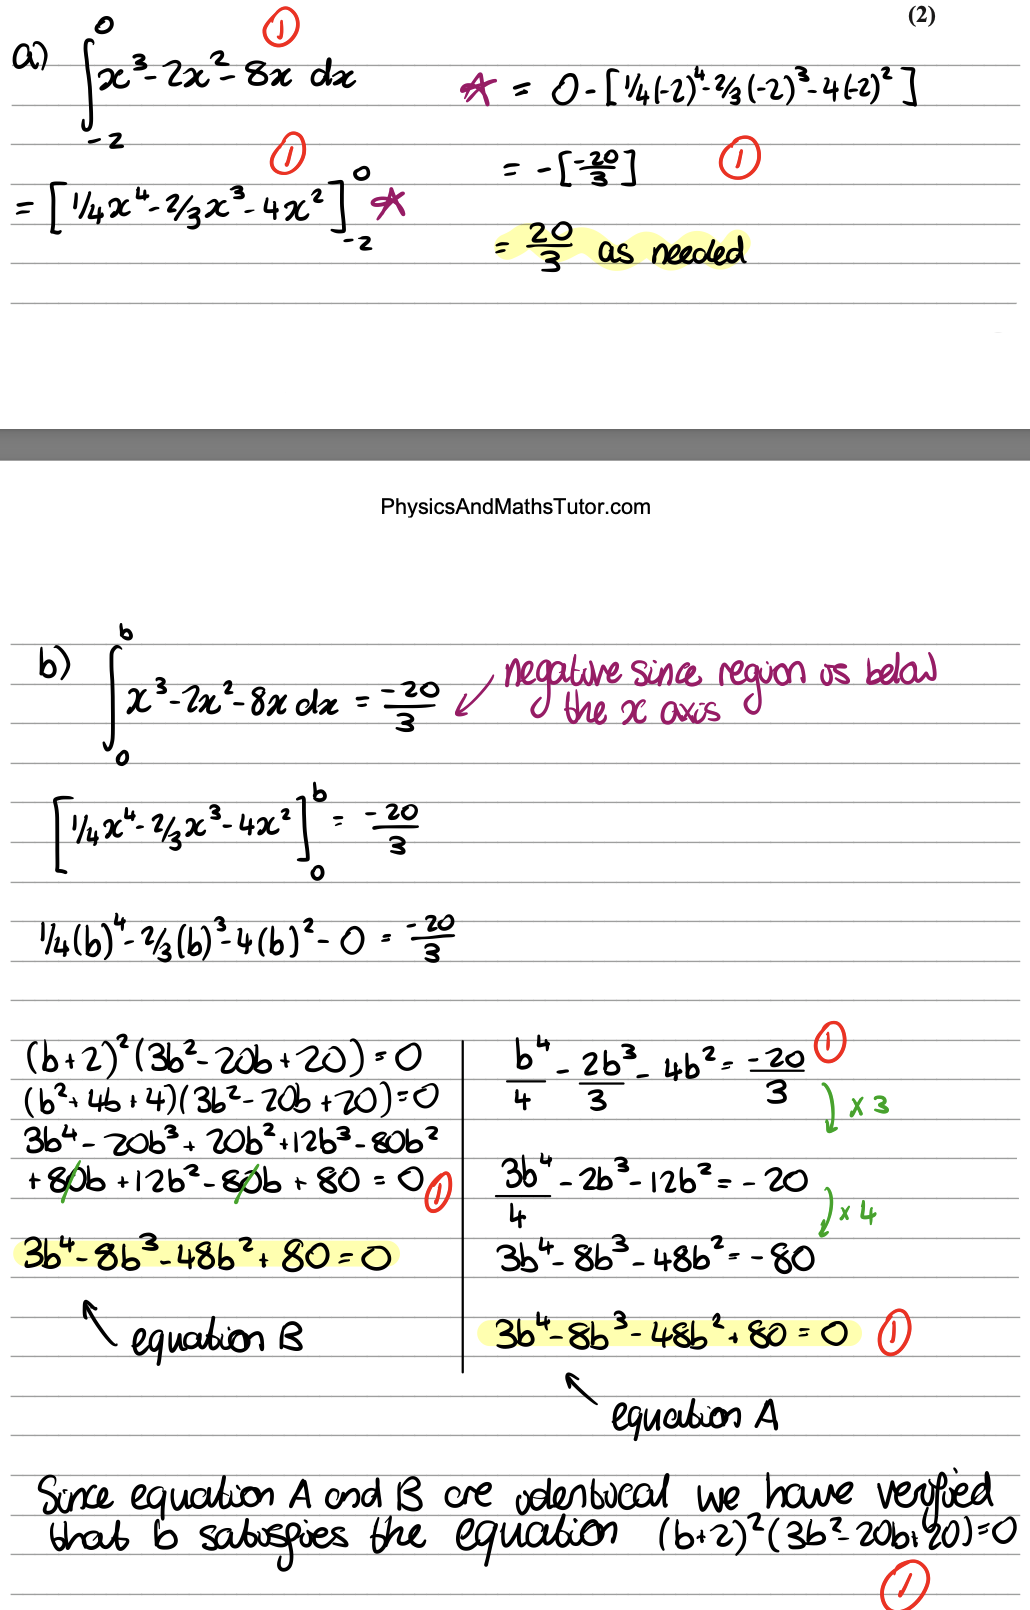 (2)
a) ∫₋₂⁰ x³ - 2x² - 8x dx ①
= [¼x⁴ - ⅔x³ - 4x²]₋₂⁰ ☆ ①
☆ = 0 - [¼(-2)⁴ - ⅔(-2)³ - 4(-2)²]
= -[-20/3] ①
= 20/3 as needed
PhysicsAndMathsTutor.com
b) ∫₀ᵇ x³ - 2x² - 8x dx = -20/3
negative since region is below
the x axis
[¼x⁴ - ⅔x³ - 4x²]₀ᵇ = -20/3
¼(b)⁴ - ⅔(b)³ - 4(b)² - 0 = -20/3
(b+2)²(3b² - 20b + 20) = 0
(b² + 4b + 4)(3b² - 20b + 20) = 0
3b⁴ - 20b³ + 20b² + 12b³ - 80b²
+ 80b + 12b² - 80b + 80 = 0 ①
3b⁴ - 8b³ - 48b² + 80 = 0
equation B
b⁴/4 - 2b³/3 - 4b² = -20/3 ①
×3
3b⁴/4 - 2b³ - 12b² = -20
×4
3b⁴ - 8b³ - 48b² = -80
3b⁴ - 8b³ - 48b² + 80 = 0 ①
equation A
Since equation A and B are identical we have verified
that b satisfies the equation (b+2)²(3b² - 20b + 20) = 0
①